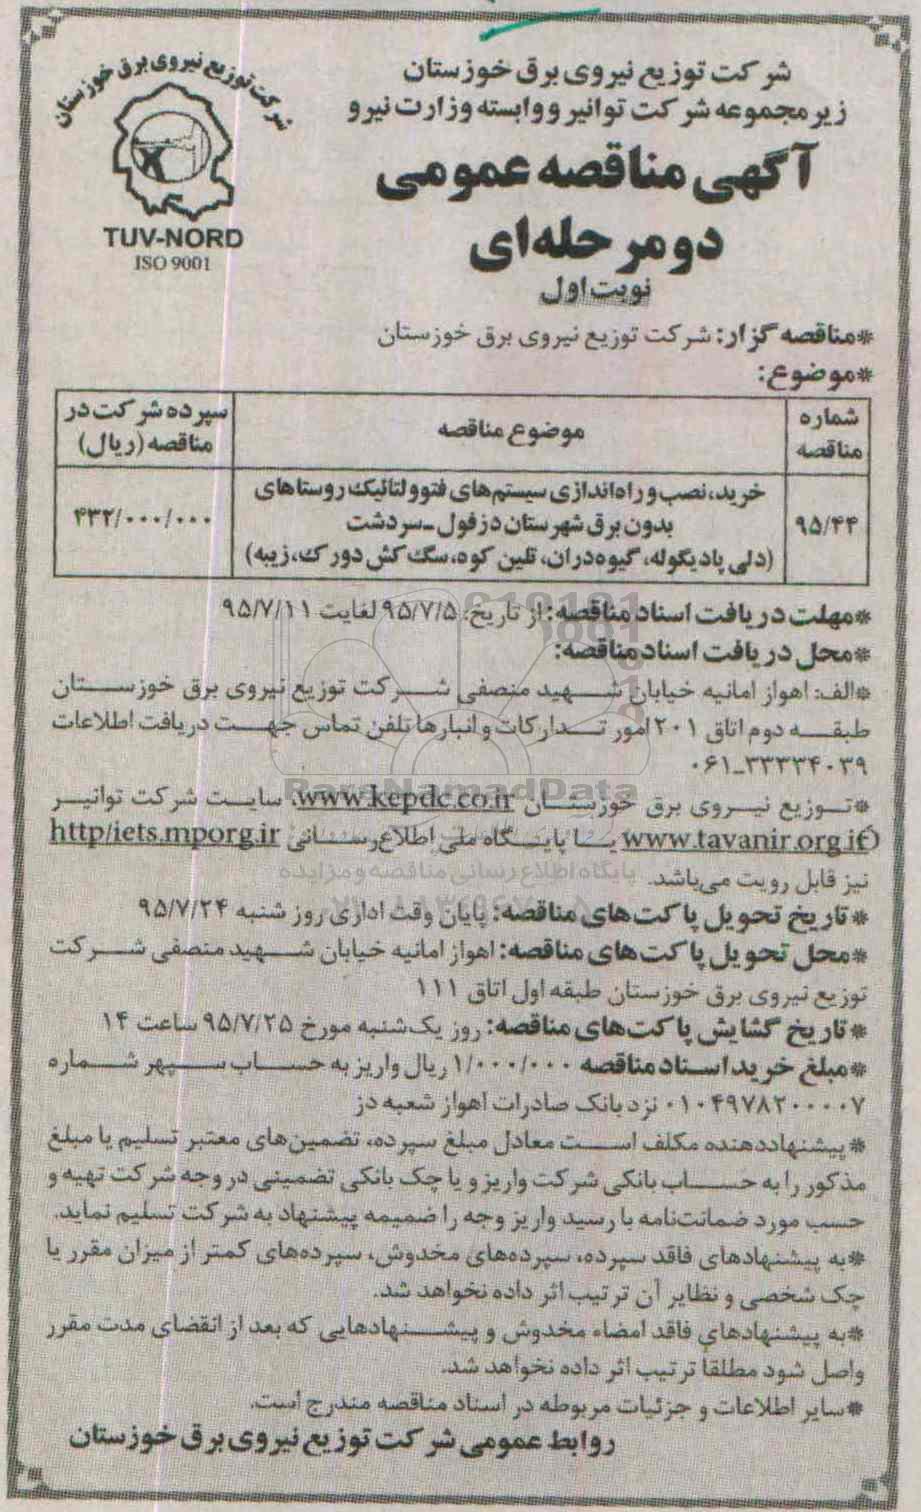 شرکت توزیع نیروی برق خوزستان
TUV-NORD
ISO 9001
شرکت توزیع نیروی برق خوزستان
زیرمجموعه شرکت توانیر و وابسته وزارت نیرو
آگهی مناقصه عمومی
دو مرحله‌ای
نوبت اول
*مناقصه گزار: شرکت توزیع نیروی برق خوزستان
*موضوع:
شماره مناقصه
موضوع مناقصه
سپرده شرکت در مناقصه (ریال)
۹۵/۴۴
خرید، نصب و راه‌اندازی سیستم‌های فتوولتائیک روستاهای
بدون برق شهرستان دزفول ـ سردشت
(دلی پادیگوله، گیوه‌دران، قلین کوه، سگ کش دورک، زیبه)
۴۳۲/۰۰۰/۰۰۰
*مهلت دریافت اسناد مناقصه: از تاریخ: ۹۵/۷/۵ لغایت ۹۵/۷/۱۱
*محل دریافت اسناد مناقصه:
*الف: اهواز امانیه خیابان شهید منصفی شرکت توزیع نیروی برق خوزستان
طبقه دوم اتاق ۲۰۱ امور تدارکات و انبارها تلفن تماس جهت دریافت اطلاعات
۰۶۱-۳۳۳۳۴۰۳۹
*توزیع نیروی برق خوزستان www.kepdc.co.ir، سایت شرکت توانیر
www.tavanir.org.ir یا پایگاه ملی اطلاع‌رسانی http/iets.mporg.ir
نیز قابل رویت می‌باشد.
*تاریخ تحویل پاکت‌های مناقصه: پایان وقت اداری روز شنبه ۹۵/۷/۲۴
*محل تحویل پاکت‌های مناقصه: اهواز امانیه خیابان شهید منصفی شرکت
توزیع نیروی برق خوزستان طبقه اول اتاق ۱۱۱
*تاریخ گشایش پاکت‌های مناقصه: روز یک‌شنبه مورخ ۹۵/۷/۲۵ ساعت ۱۴
*مبلغ خرید اسناد مناقصه ۱/۰۰۰/۰۰۰ ریال واریز به حساب سپهر شماره
۰۱۰۴۹۷۸۲۰۰۰۰۷ نزد بانک صادرات اهواز شعبه دز
*پیشنهاددهنده مکلف است معادل مبلغ سپرده، تضمین‌های معتبر تسلیم یا مبلغ
مذکور را به حساب بانکی شرکت واریز و یا چک بانکی تضمینی در وجه شرکت تهیه و
حسب مورد ضمانت‌نامه با رسید واریز وجه را ضمیمه پیشنهاد به شرکت تسلیم نماید.
*به پیشنهادهای فاقد سپرده، سپرده‌های مخدوش، سپرده‌های کمتر از میزان مقرر یا
چک شخصی و نظایر آن ترتیب اثر داده نخواهد شد.
*به پیشنهادهای فاقد امضاء مخدوش و پیشنهادهایی که بعد از انقضای مدت مقرر
واصل شود مطلقا ترتیب اثر داده نخواهد شد.
*سایر اطلاعات و جزئیات مربوطه در اسناد مناقصه مندرج است.
روابط عمومی شرکت توزیع نیروی برق خوزستان
ParsNamadData
پایگاه اطلاع رسانی مناقصه و مزایده